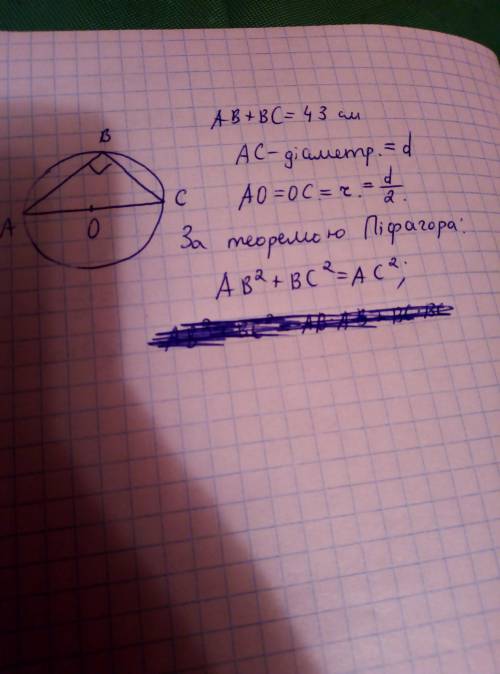 B
A
O
C
AB+BC=43 см
AC-діаметр.=d
AO=OC=r.=d/2.
За теоремою Піфагора:
AB²+BC²=AC²;